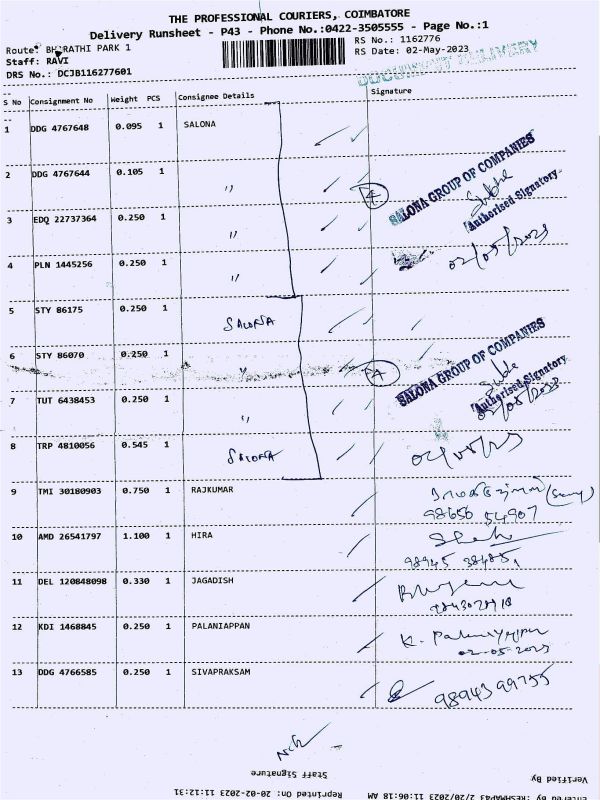 THE PROFESSIONAL COURIERS, COIMBATORE
Delivery Runsheet - P43 - Phone No.:0422-3505555 - Page No.:1
Route: BHARATHI PARK 1
RS No.: 1162776
Staff: RAVI
RS Date: 02-May-2023
DRS No.: DCJB116277601
DOCUMENT DELIVERY
S No Consignment No Weight PCS Consignee Details Signature
1 DDG 4767648 0.095 1 SALONA
2 DDG 4767644 0.105 1 〃
4
SALONA GROUP OF COMPANIES
Authorised Signatory
3 EDQ 22737364 0.250 1 〃
02/05/2023
4 PLN 1445256 0.250 1 〃
5 STY 86175 0.250 1 SALONA
6 STY 86070 0.250 1
4
SALONA GROUP OF COMPANIES
Authorised Signatory
7 TUT 6438453 0.250 1 〃
02/05/23
8 TRP 4810056 0.545 1 SALONA
9 TMI 30180903 0.750 1 RAJKUMAR
98656 54907
10 AMD 26541797 1.100 1 HIRA
11 DEL 120848098 0.330 1 JAGADISH
12 KDI 1468845 0.250 1 PALANIAPPAN K. Palaniyappan
02-05-2023
13 DDG 4766585 0.250 1 SIVAPRAKSAM 9894399755
Staff Signature
Verified By
Reprinted On: 20-02-2023 11:12:31
Entered By :RESHMAP43 2/20/2023 11:06:18 AM